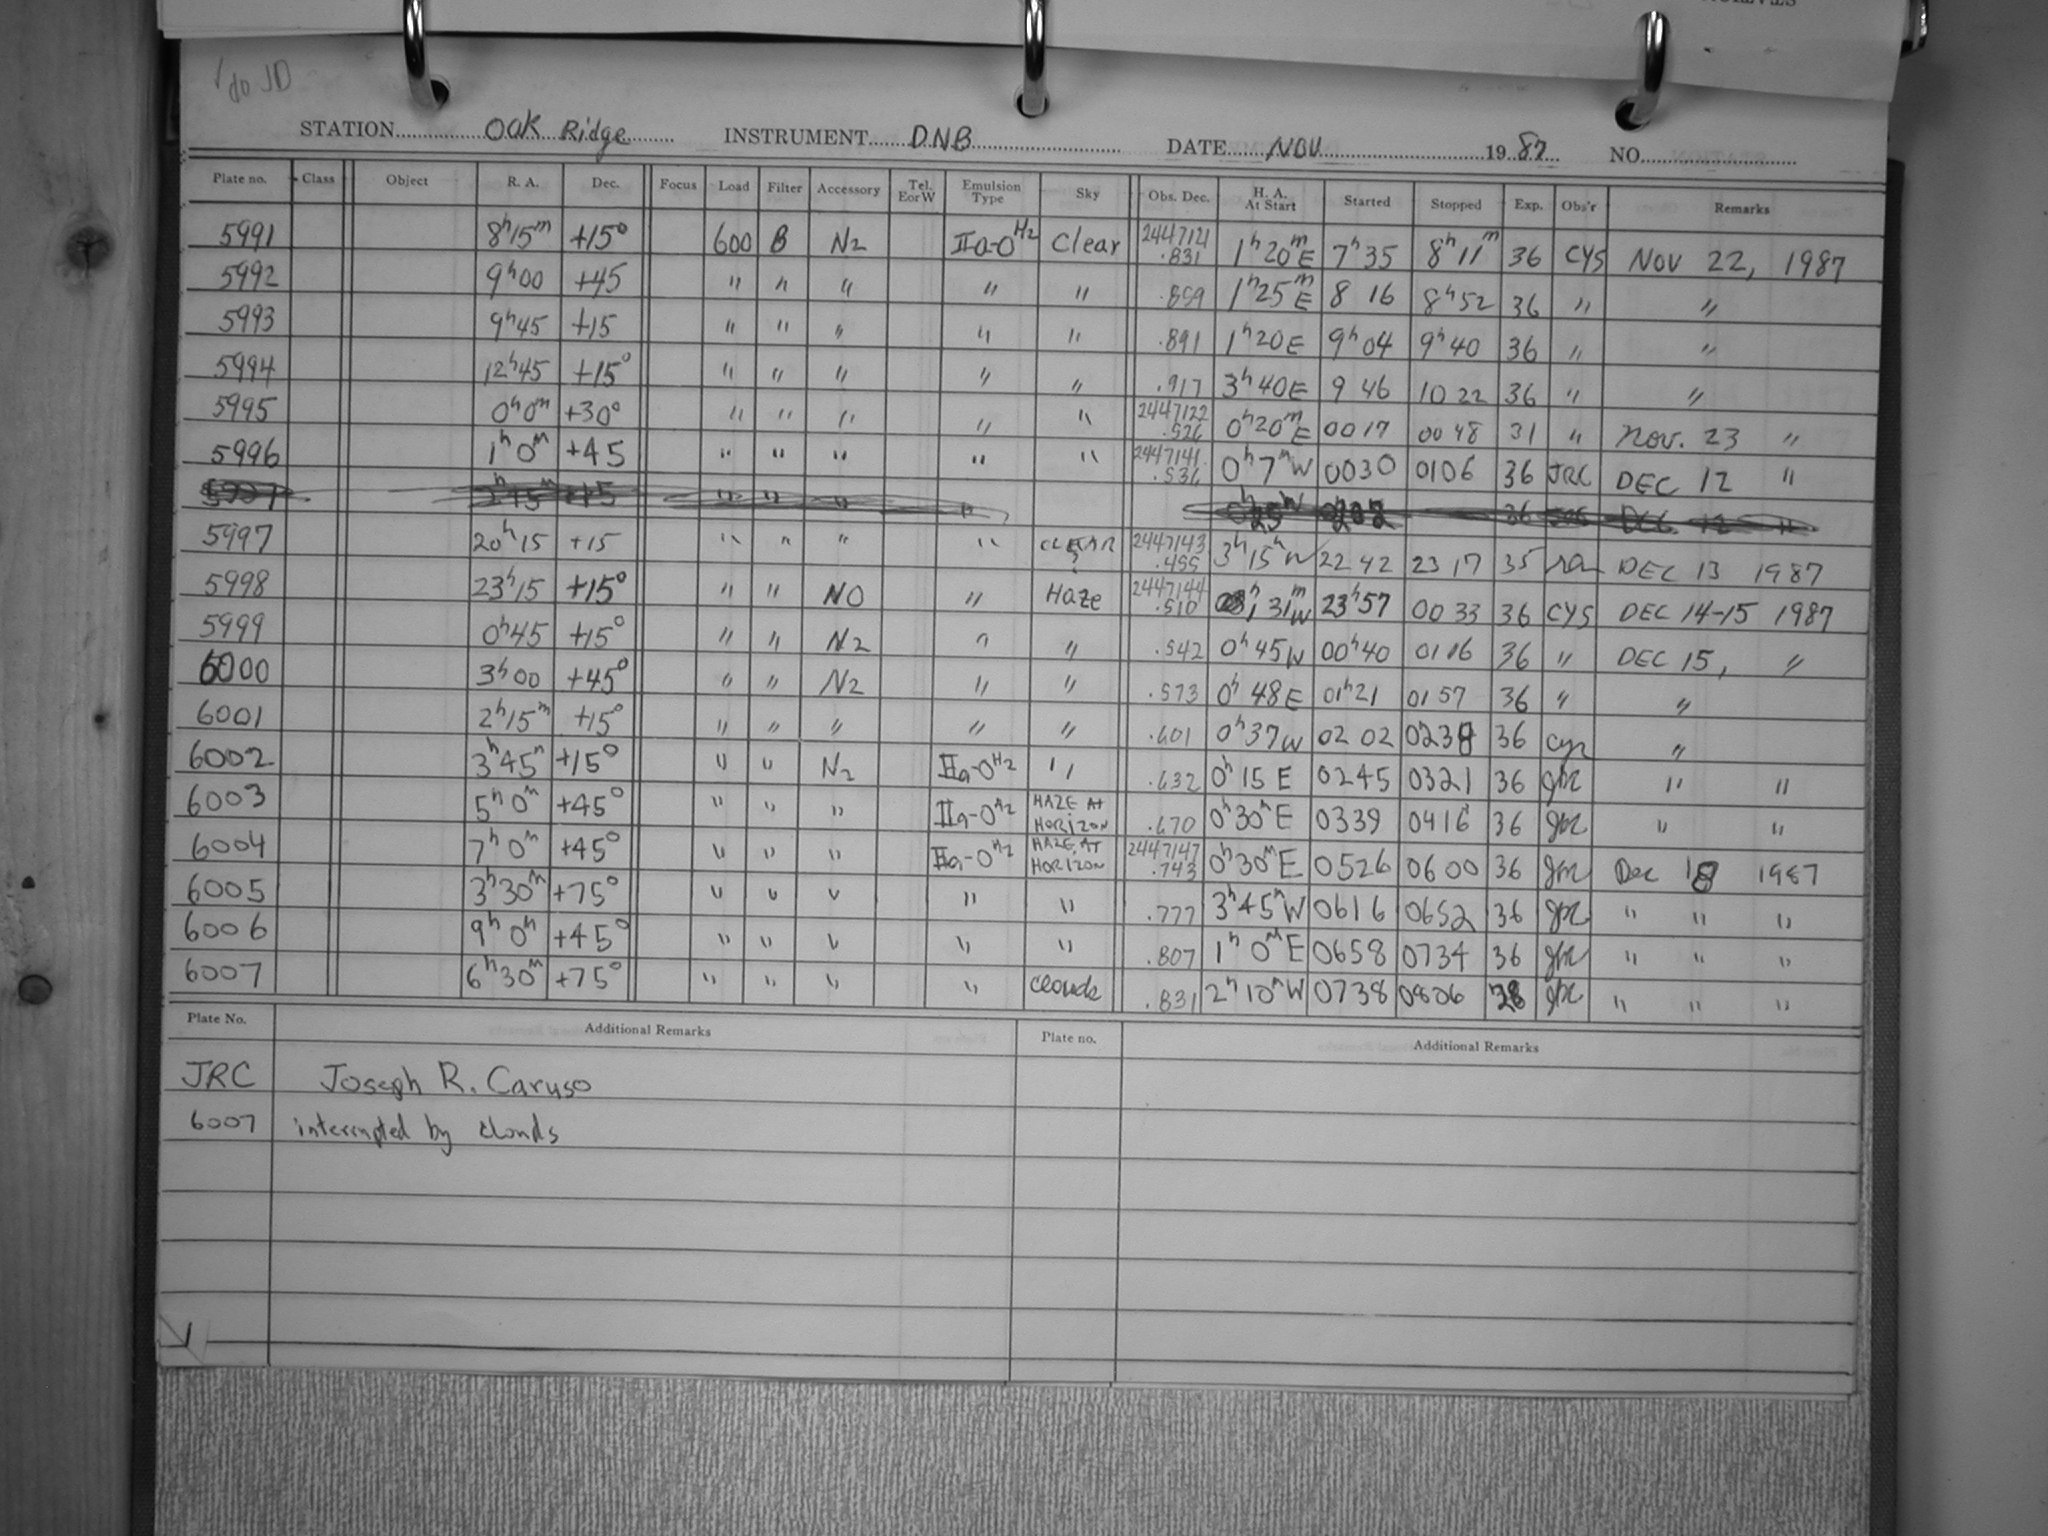 √ do JD
STATION Oak Ridge INSTRUMENT DNB DATE NOV 19 87 NO.
Plate no. Class Object R. A. Dec. Focus Load Filter Accessory Tel. E or W Emulsion Type Sky Obs. Dec. H. A. At Start Started Stopped Exp. Obs'r Remarks
5991 8h15m +15° 600 B N2 IIa-O H2 Clear 2447121 .831 1h20mE 7h35 8h11m 36 CYS NOV 22, 1987
5992 9h00 +45 " " " " " .859 1h25mE 8 16 8h52 36 " "
5993 9h45 +15 " " " " " .891 1h20E 9h04 9h40 36 " "
5994 12h45 +15° " " " " " .917 3h40E 9 46 10 22 36 " "
5995 0h0m +30° " " " " " 2447122 .526 0h20mE 00 17 00 48 31 " Nov. 23 "
5996 1h0m +45 " " " " " 2447141 .536 0h7mW 0030 0106 36 JRC DEC 12 "
5997 20h15 +15 " " " " CLEAR? 2447143 .455 3h15hW 22 42 23 17 35 DEC 13 1987
5998 23h15 +15° " " NO " Haze 2447144 .510 1h31mW 23h57 00 33 36 CYS DEC 14-15 1987
5999 0h45 +15° " " N2 " " .542 0h45W 00h40 01 16 36 " DEC 15, "
6000 3h00 +45° " " N2 " " .573 0h48E 01h21 01 57 36 " "
6001 2h15m +15° " " " " " .601 0h37W 02 02 0238 36 cys "
6002 3h45m +15° " " N2 IIa-O H2 " .632 0h15E 0245 0321 36 jrc " "
6003 5h0m +45° " " " IIa-O H2 HAZE AT HORIZON .670 0h30mE 0339 0416 36 jrc " "
6004 7h0m +45° " " " IIa-O H2 HAZE AT HORIZON 2447147 .743 0h30mE 0526 0600 36 jrc Dec 18 1987
6005 3h30m +75° " " " " " .777 3h45mW 0616 0652 36 jrc " " "
6006 9h0m +45° " " " " " .807 1h0mE 0658 0734 36 jrc " " "
6007 6h30m +75° " " " " clouds .831 2h10mW 0738 0806 28 jrc " " "
Plate No. Additional Remarks Plate no. Additional Remarks
JRC Joseph R. Caruso
6007 interrupted by clouds